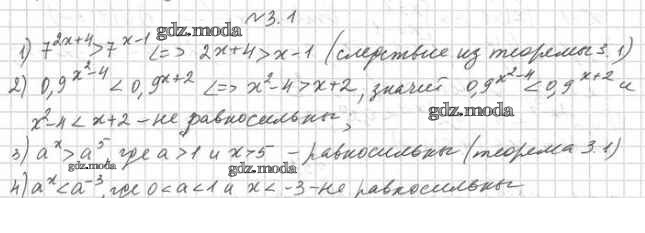 №3.1
gdz.moda
1) 7^{2x+4}>7^{x-1} <=> 2x+4>x-1 (следствие из теоремы 3.1)
2) 0,9^{x²-4}<0,9^{x+2} <=> x²-4>x+2, значит 0,9^{x²-4}<0,9^{x+2} и
gdz.moda
x²-4<x+2 - не равносильны;
3) a^x>a^5, где a>1 и x>5 - равносильны (теорема 3.1)
gdz.moda gdz.moda
4) a^x<a^{-3}, где 0<a<1 и x<-3 - не равносильны